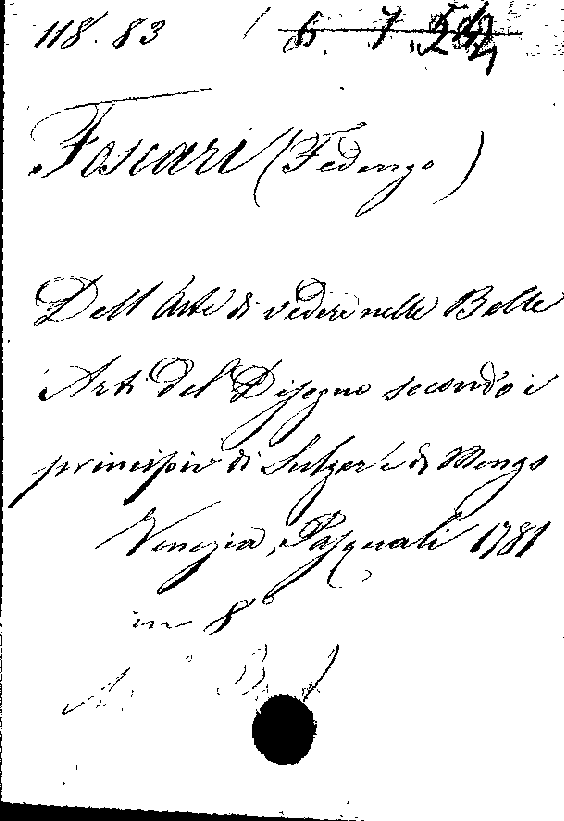 118. 83
Foscari (Federigo)
Dell'Arte di vedere nelle Belle
Arti del Disegno secondo i
principii di Sulzer e di Mengs
Venezia, Pasquali 1781
in 8°